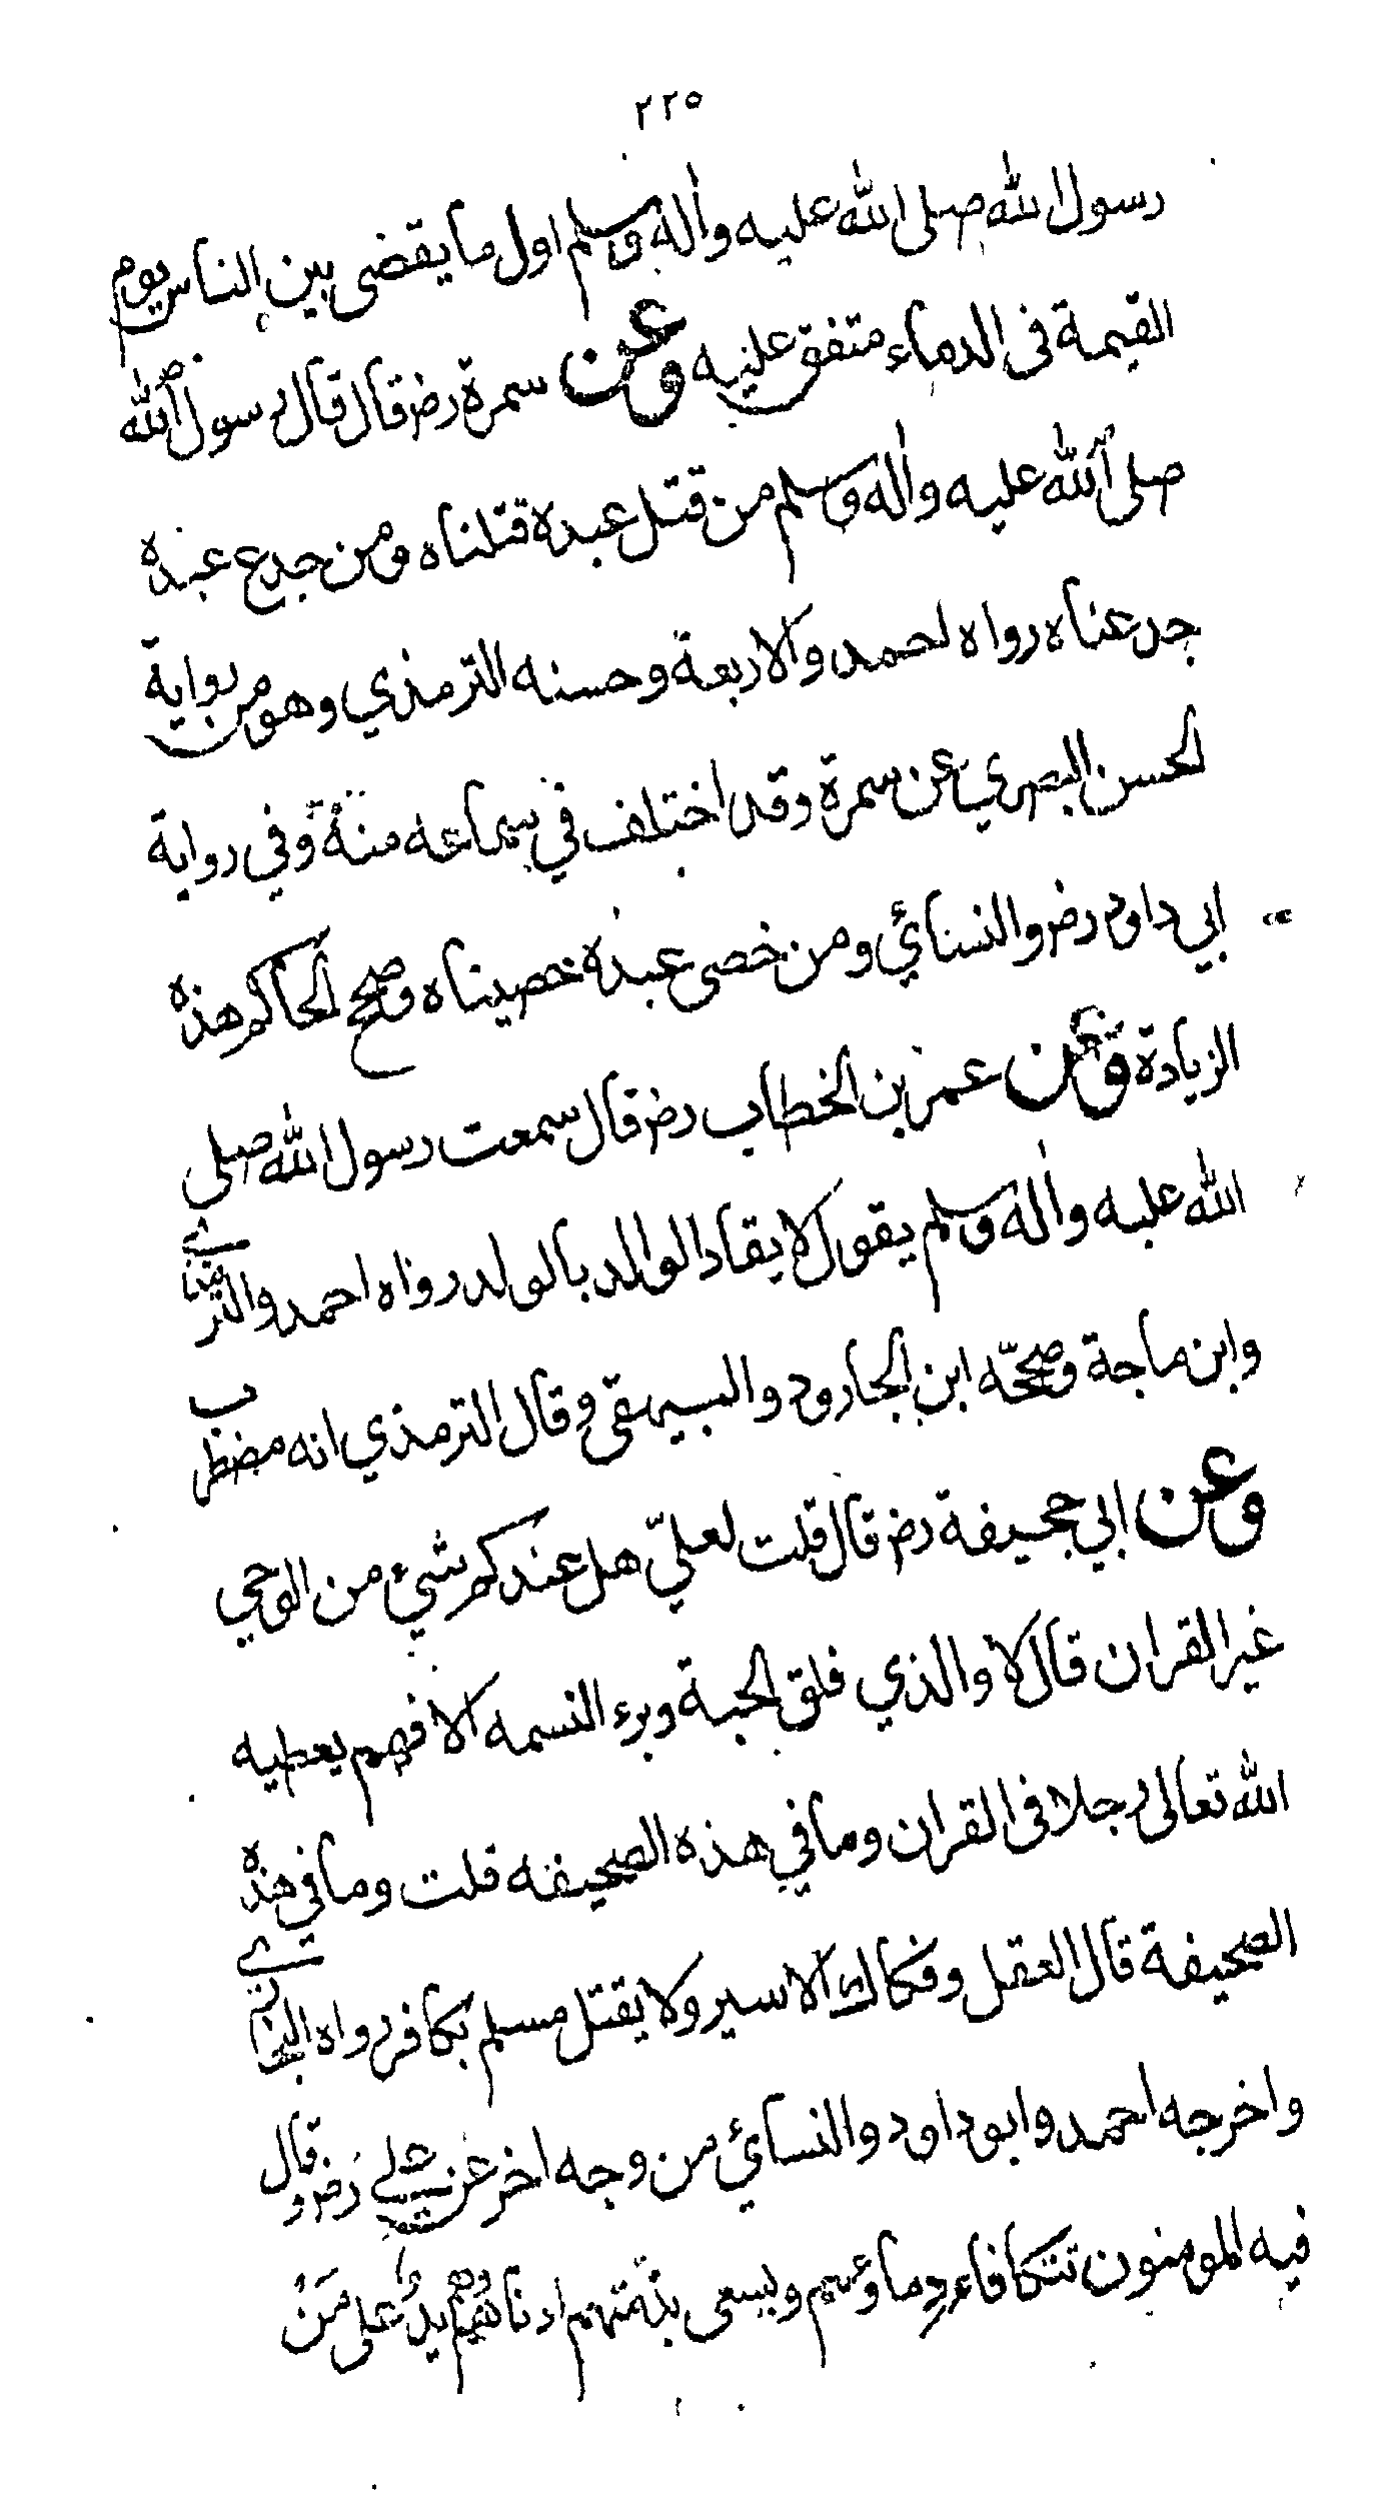 ٢٢٥
رسول الله صلى الله عليه واله وسلم اول ما يقضى بين الناس يوم
القيمة فى الدماء متفق عليه وعن سمرة رض قال قال رسول الله
صلى الله عليه واله وسلم من قتل عبده قتلناه ومن جدع عبده
جدعناه رواه احمد والاربعة وحسنه الترمذي وهو من رواية
الحسن البصري عن سمرة وقد اختلف في سماعه منه وفي رواية
ابي داود رض والنسائي ومن خصى عبده خصيناه وصحح الحاكم هذه
الزيادة وعن عمر بن الخطاب رض قال سمعت رسول الله صلى
الله عليه واله وسلم يقول لا يقاد الوالد بالولد رواه احمد والترمذي
وابن ماجة وصححّه ابن الجارود والبيهقى وقال الترمذي انه مضطرب
وعن ابي جحيفة رض قال قلت لعليّ هل عندكم شئ من الوحي
غير القران قال لا والذي فلق الحبة وبرء النسمه الا فهم يعطيه
الله تعالى رجلا فى القران وما في هذه الصحيفه قلت وما في هذه
الصحيفة قال العقل وفكاك الاسير ولا يقتل مسلم بكافر رواه البخاري
واخرجه احمد وابو داود والنسائي من وجه اخر عن علي رض وقال
فيه المومنون تتكافاء دماؤهم ويسعى بذمّتهم ادناهم وهم يد على مَنْ